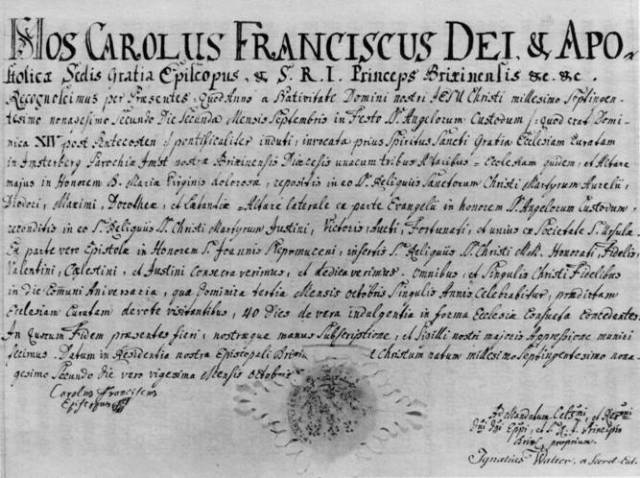 NOS CAROLUS FRANCISCUS DEI, & APO-
stolicæ Sedis Gratia Episcopus, & S. R. I. Princeps Brixinensis &c. &c.
Recognoscimus per Præsentes, Quod Anno a Nativitate Domini nostri JESU Christi millesimo Septingen-
tesimo nonagesimo Secundo Die Secunda Mensis Septembris in Festo SS. Angelorum Custodum, quod erat Domi-
nica XIV post Pentecosten pontificaliter induti, invocata prius Spiritus Sancti Gratia Ecclesiam Curatam
in Imsterberg Parochiæ Imst nostræ Brixinensis Diœcesis unacum tribus Altaribus Ecclesiam quidem, et Altare
majus in Honorem B. Mariæ Virginis dolorosæ, repositis in eo SS. Reliquiis Sanctorum Christi Martyrum Aurelii,
Diodori, Maximi, Dorotheæ, et Candidæ Altare laterale ex parte Evangelii in honorem SS. Angelorum Custodum,
reconditis in eo SS. Reliquiis SS. Christi Martyrum Justini, Victoris, Aucti, Fortunati, et unius ex Societate S. Ursulæ
Ex parte vero Epistolæ in Honorem S. Joannis Nepomuceni, insertis SS. Reliquiis SS. Christi MM. Honorati, Fidelis,
Valentini, Cælestini, et Justini consecraverimus, et dedicaverimus omnibus, et Singulis Christi Fidelibus
in die Comuni Aniversaria, qua Dominica tertia Mensis Octobris Singulis Annis Celebrabitur, prædictam
Ecclesiam Curatam devote visitantibus, 40 Dies de vera indulgentia in forma Ecclesiæ Consueta Concedentes.
In Quorum Fidem præsentes fieri, nostræque manus Subscriptione, et Sigilli nostri majoris Appressione muniri
fecimus. Datum in Residentia nostra Episcopali Christum natum millesimo Septingentesimo nona-
gesimo Secundo Die vero vigesima Mensis Octobris
Carolus Franciscus
Episcopus
Ad Mandatum
Principis
proprium
Ignatius Walser